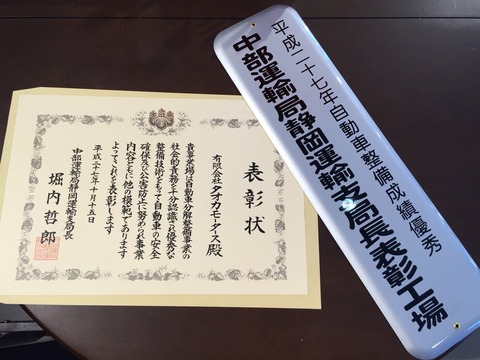 表彰状
有限会社タオカモータース殿
貴事業場は自動車分解整備事業の
社会的責務を十分認識され優秀な
整備技術をもって自動車の安全
確保及び公害防止に努められ事業
内容ともに他の模範であります
よってこれを表彰します
平成二十七年十月十五日
中部運輸局静岡運輸支局長
堀内哲郎
平成二十七年自動車整備成績優秀
中部運輸局静岡運輸支局長表彰工場